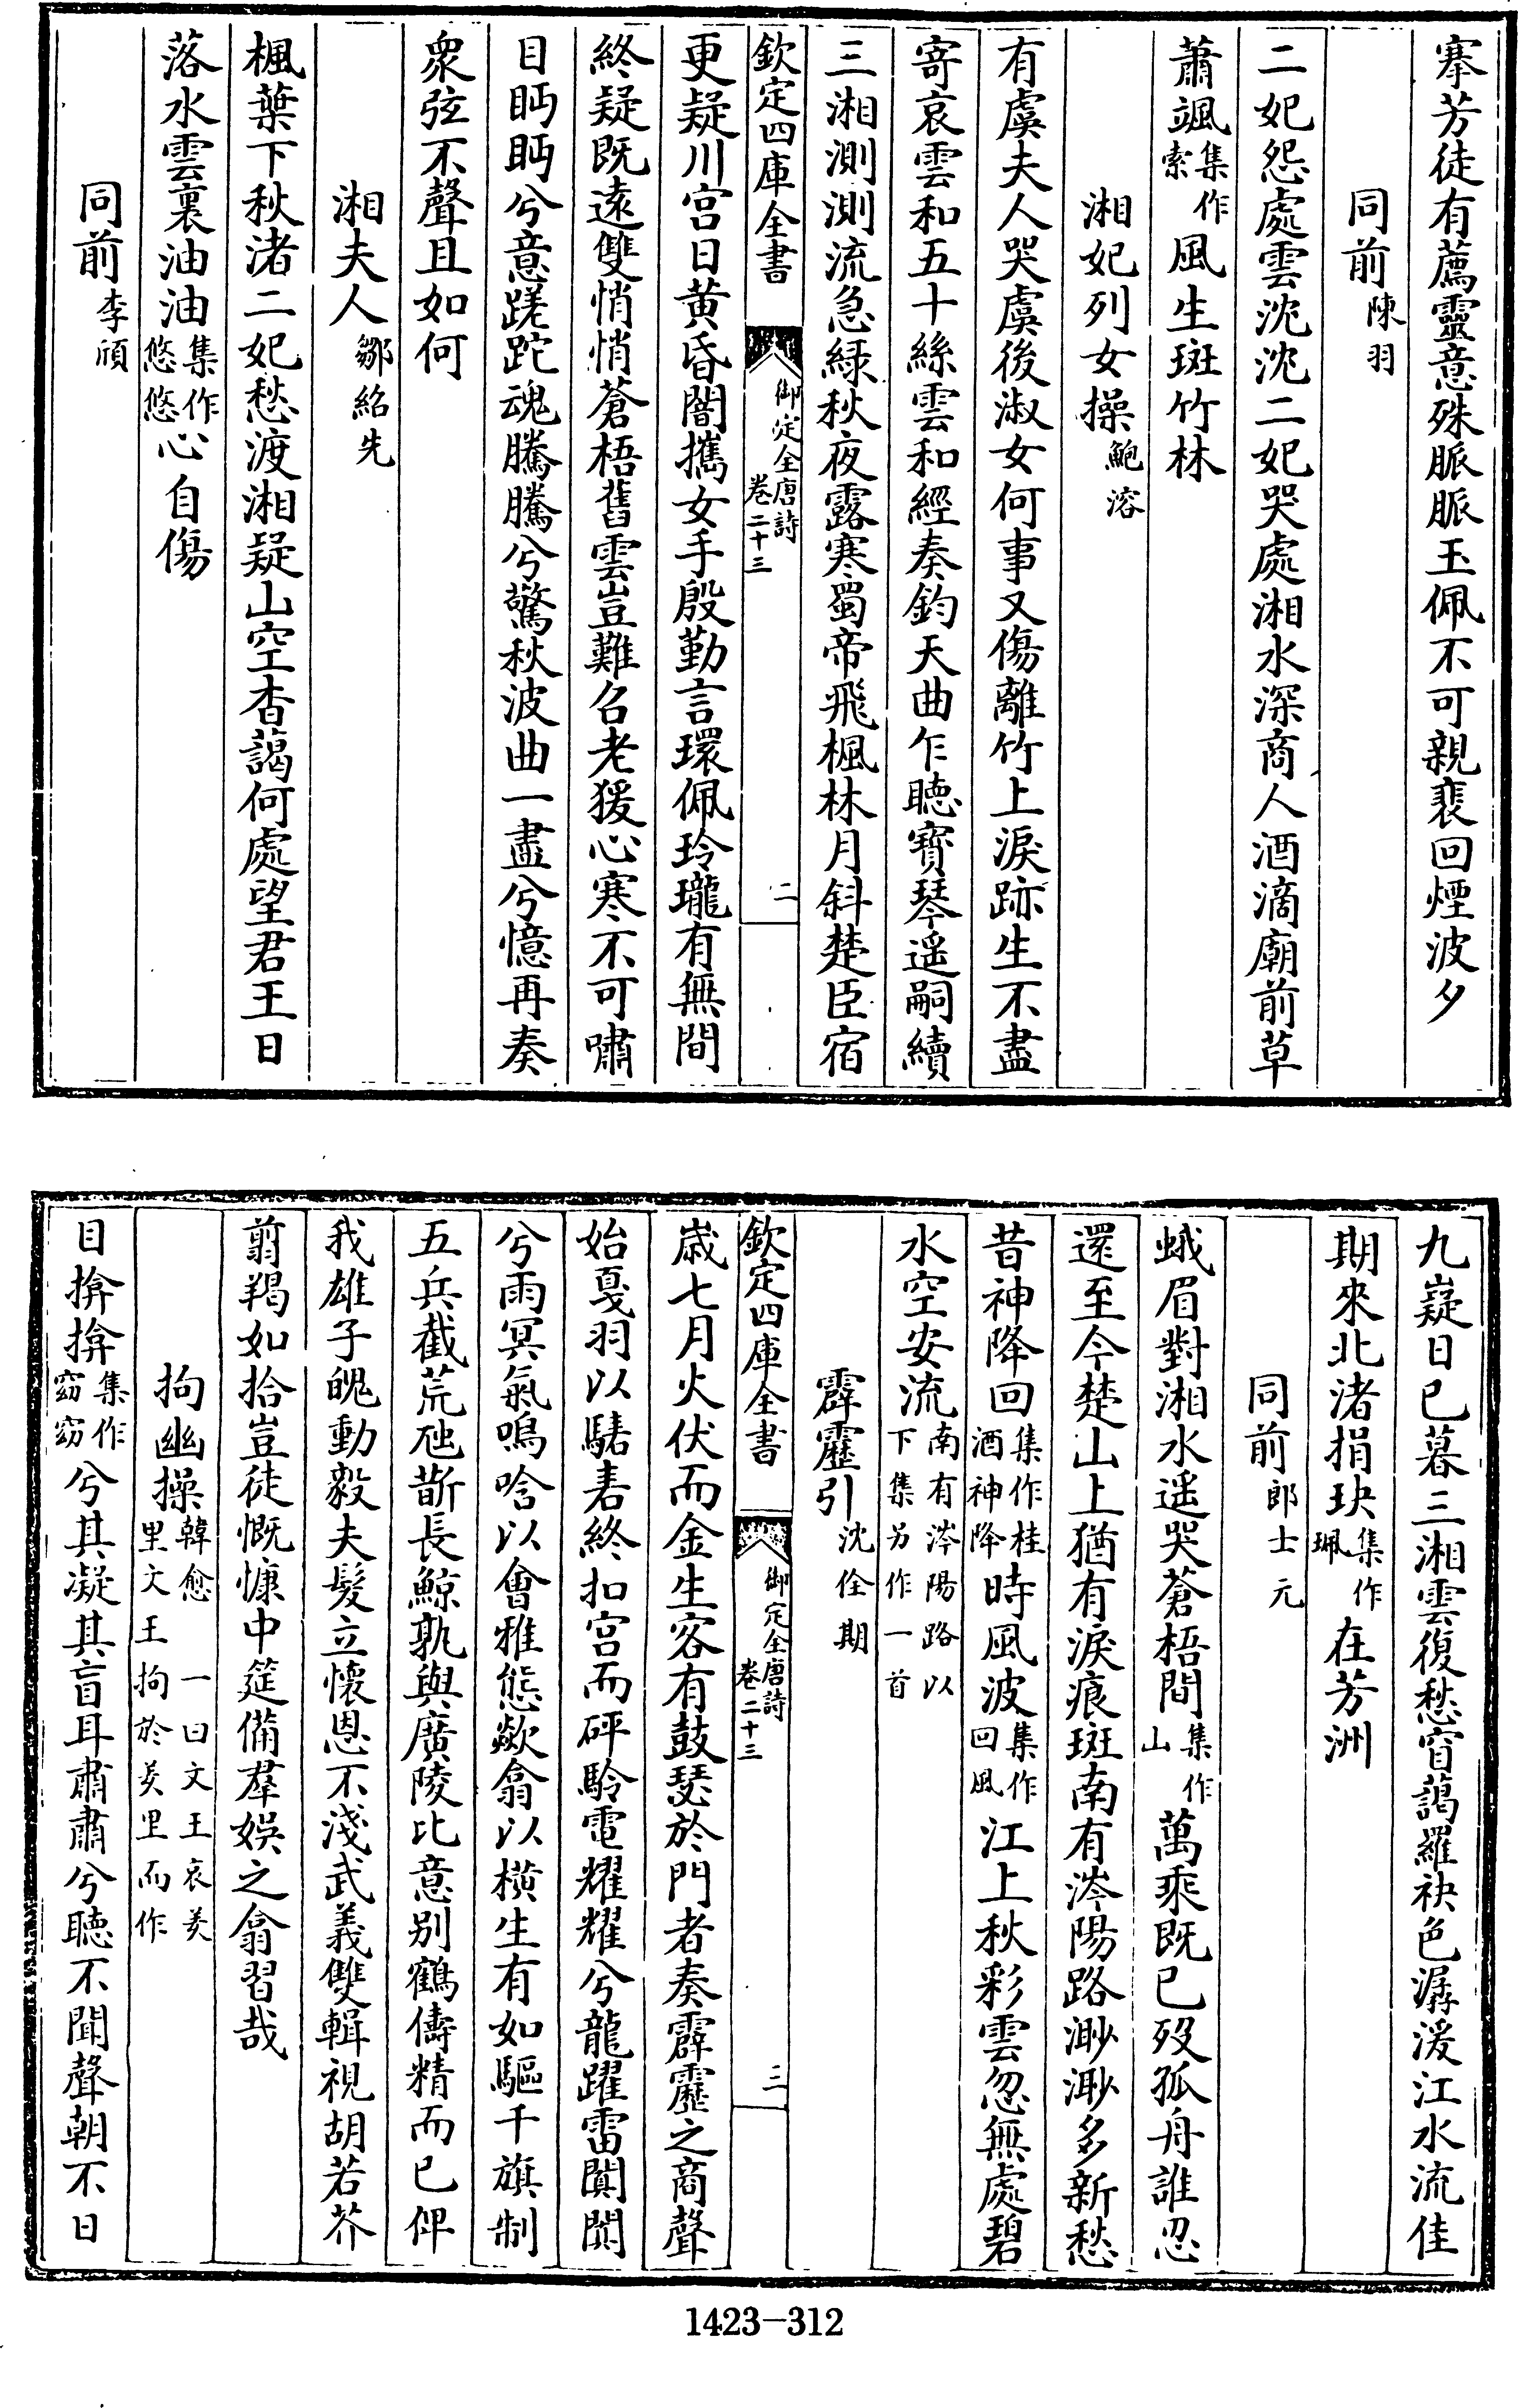 搴芳徒有薦靈意殊脈脈玉佩不可親裴回煙波夕
同前陳羽
二妃怨處雲沈沈二妃哭處湘水深商人酒滴廟前草
蕭颯集作索風生斑竹林
湘妃列女操鮑溶
有虞夫人哭虞後淑女何事又傷離竹上淚跡生不盡
寄哀雲和五十絲雲和經奏鈞天曲乍聴寶琴遥嗣續
三湘測測流急緑秋夜露寒蜀帝飛楓林月斜楚臣宿
欽定四庫全書 御定全唐詩卷二十三 二
更疑川宫日黄昏闇攜女手殷勤言環佩玲瓏有無間
終疑既遠雙悄悄蒼梧舊雲豈難召老猨心寒不可嘯
目眄眄兮意蹉跎魂騰騰兮驚秋波曲一盡兮憶再奏
衆弦不聲且如何
湘夫人鄒紹先
楓葉下秋渚二妃愁渡湘疑山空杳藹何處望君王日
落水雲裏油油集作悠悠心自傷
同前李頎
九嶷日已暮三湘雲復愁窅藹羅袂色潺湲江水流佳
期來北渚捐玦集作珮在芳洲
同前郎士元
蛾眉對湘水遥哭蒼梧間集作山萬乘既已歿孤舟誰忍
還至今楚山上猶有淚痕斑南有涔陽路渺渺多新愁
昔神降回集作桂酒神降時風波集作回風江上秋彩雲忽無處碧
水空安流南有涔陽路以下集另作一首
霹靂引沈佺期
歲七月火伏而金生客有鼓瑟於門者奏霹靂之商聲
始戛羽以騞砉終扣宫而砰駖電耀耀兮龍躍雷闐闐
兮雨冥氣嗚唅以會雅態欻翕以橫生有如驅千旗制
五兵截荒虺斮長鯨孰與廣陵比意别鶴儔精而已俾
我雄子魄動毅夫髮立懷恩不淺武義雙輯視胡若芥
翦羯如拾豈徒慨慷中筵備羣娛之翕習哉
拘幽操韓愈 一曰文王哀羑里文王拘於羑里而作
目揜揜集作窈窈兮其凝其盲耳肅肅兮聴不聞聲朝不日
欽定四庫全書 御定全唐詩卷二十三 三
1423-312